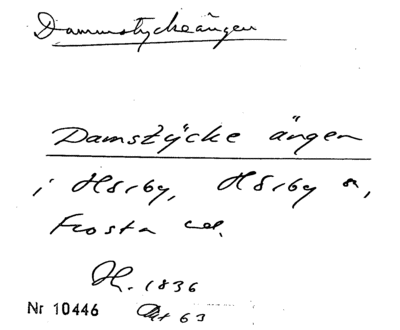 Dammstyckeängen
Damstycke ängen
i Hörby, Hörby s,
Frosta
H. 1836
Nr 10446 Akt 63